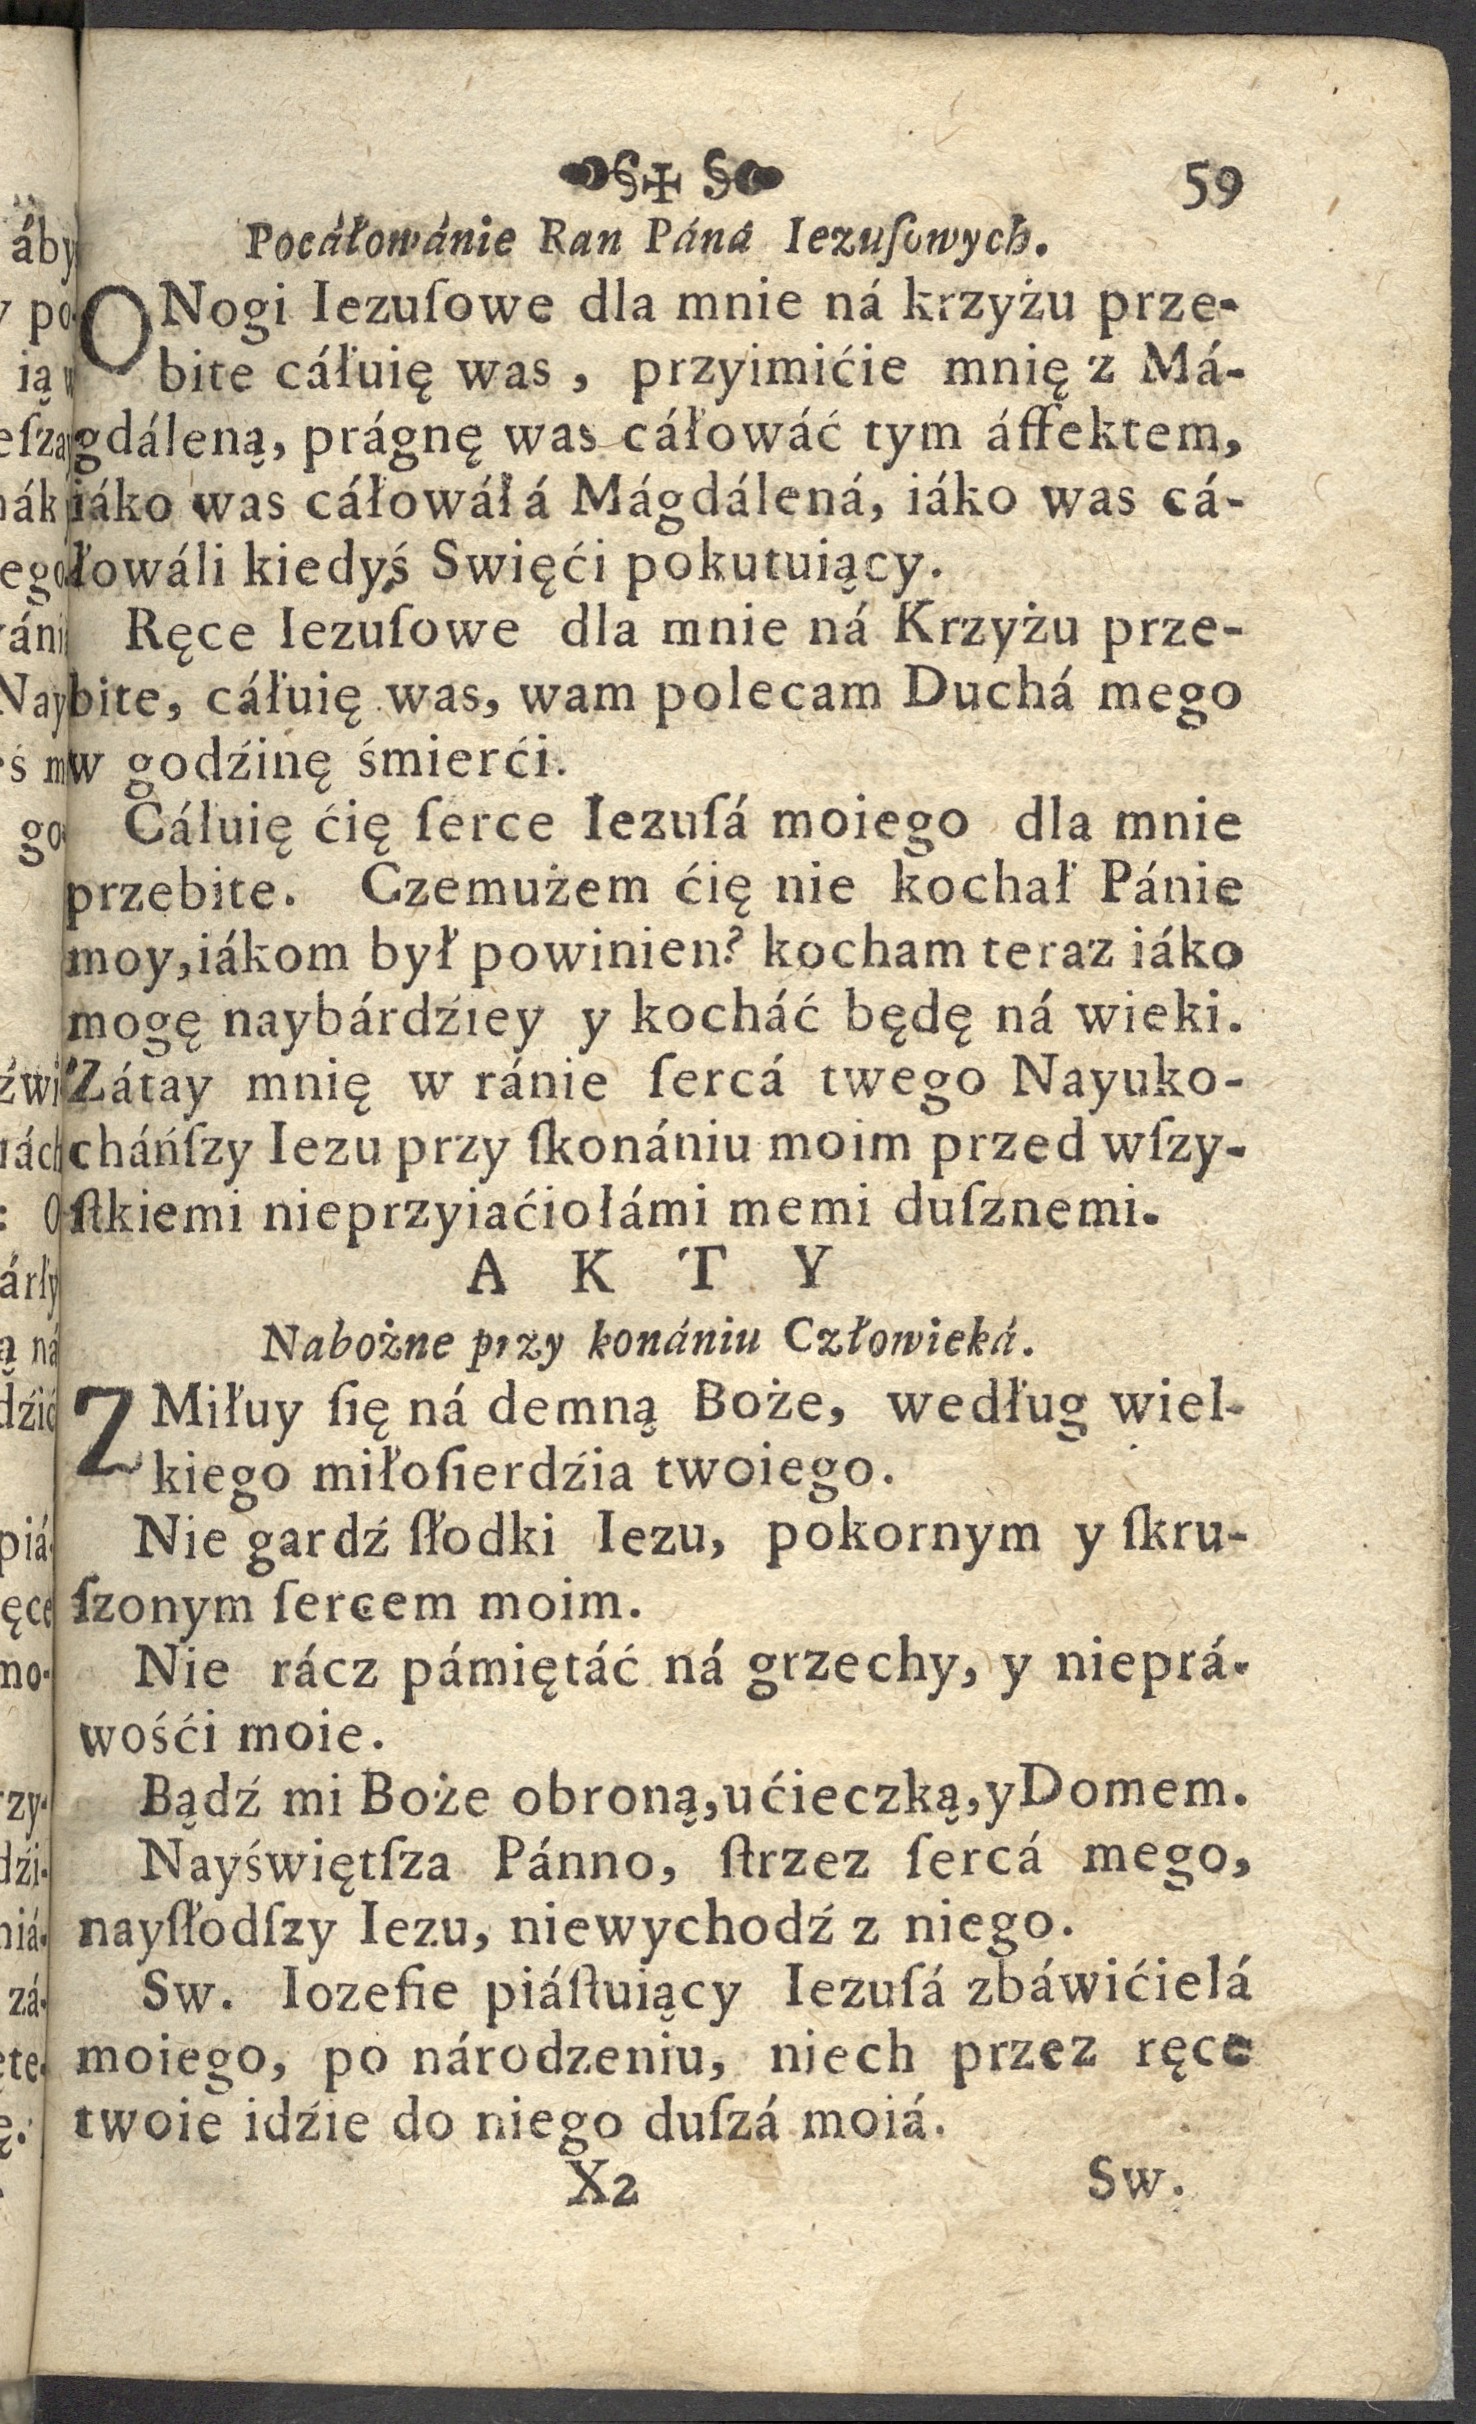 59
Pocáłowánie Ran Páná Iezuſowych.
O Nogi Iezuſowe dla mnie ná krzyżu prze-
bite cáłuię was, przyimićie mnię z Má-
gdáleną, prágnę was cáłowáć tym áffektem,
iáko was cáłowáłá Mágdálená, iáko was cá-
łowáli kiedyś Swięći pokutuiący.
Ręce Iezuſowe dla mnie ná Krzyżu prze-
bite, cáłuię was, wam polecam Duchá mego
w godźinę śmierći.
Cáłuię ćię ſerce Iezuſá moiego dla mnie
przebite. Czemużem ćię nie kochał Pánie
moy, iákom był powinien? kocham teraz iáko
mogę naybárdźiey y kocháć będę ná wieki.
Zátay mnię w ránie ſercá twego Nayuko-
cháńſzy Iezu przy ſkonániu moim przed wſzy-
ſtkiemi nieprzyiaćiołámi memi duſznemi.
A K T Y
Nabożne przy konániu Człowieká.
ZMiłuy ſię ná demną Boże, według wiel-
kiego miłoſierdźia twoiego.
Nie gardź ſłodki Iezu, pokornym y ſkru-
ſzonym ſercem moim.
Nie rácz pámiętáć ná grzechy, y nieprá-
wośći moie.
Bądź mi Boże obroną, ućieczką, y Domem.
Nayświętſza Pánno, ſtrzez ſercá mego,
nayſłodſzy Iezu, niewychodź z niego.
Sw. Iozefie piáſtuiący Iezuſá zbáwićielá
moiego, po národzeniu, niech przez ręce
twoie idźie do niego duſzá moiá.
X2 Sw.